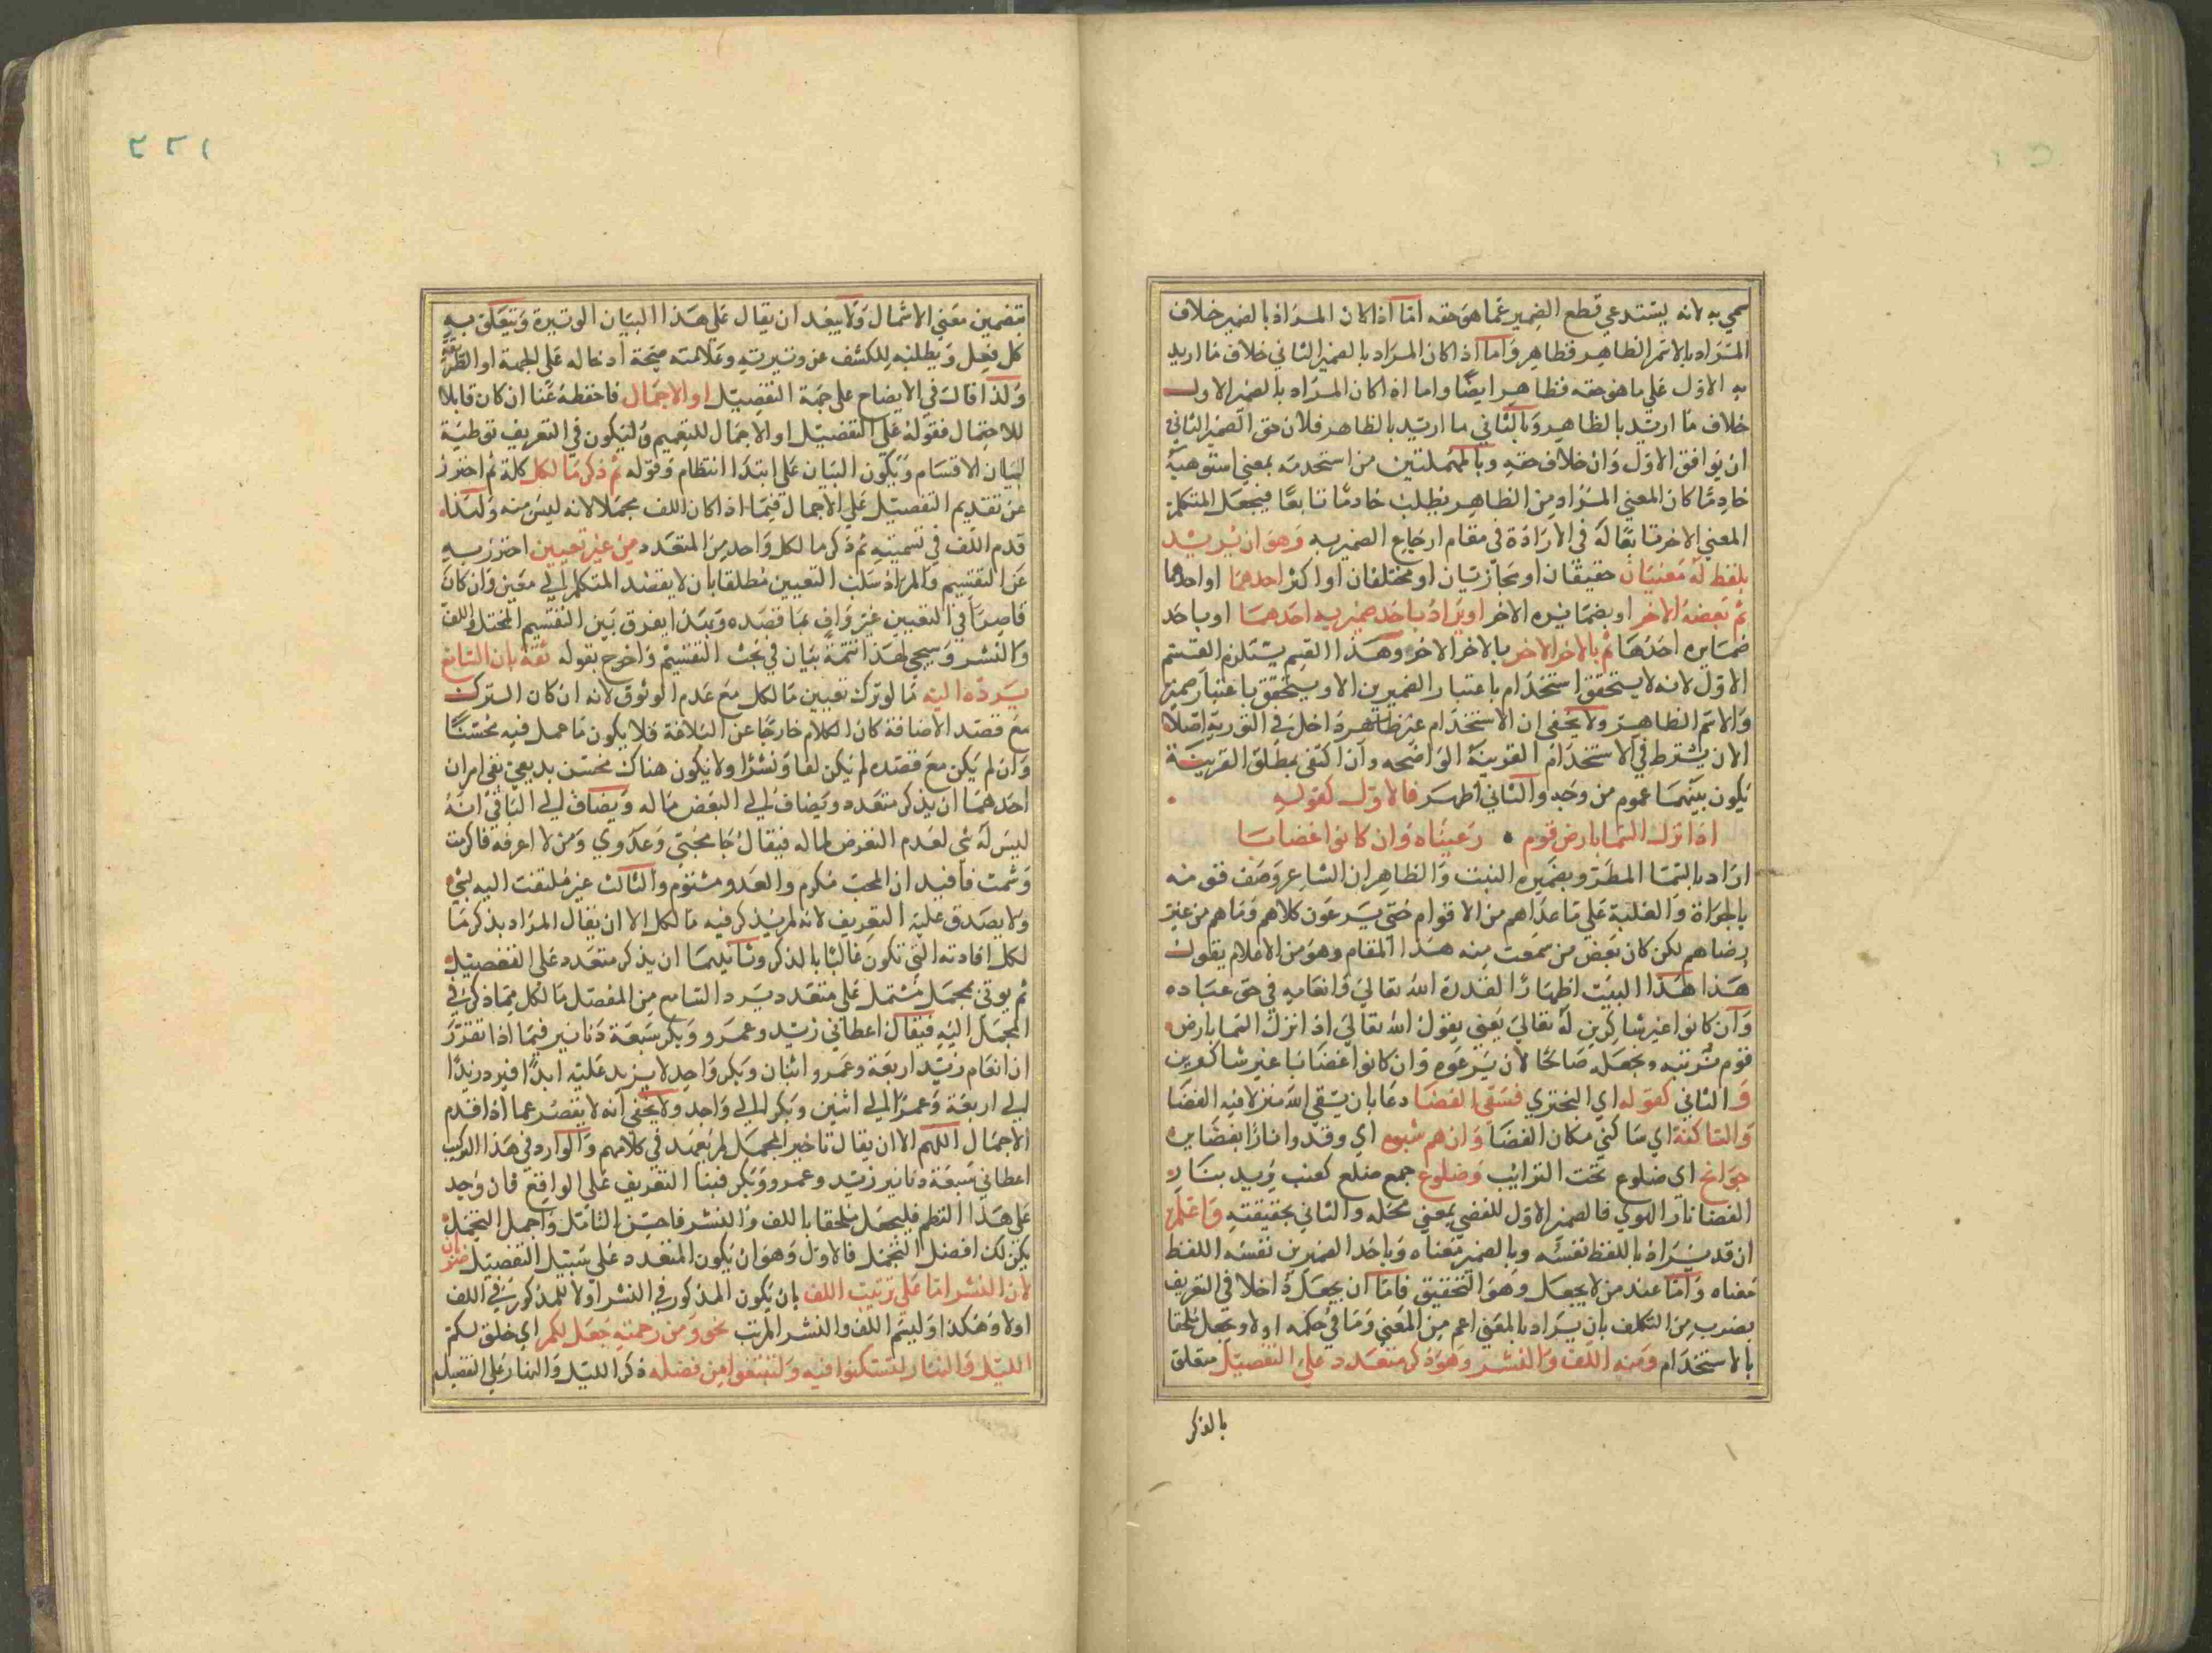 سمي به لانه يستدعي قطع الضمير عما هو حقه اما اذا كان المراد بالضمير خلاف
المراد بالاسم الظاهر فظاهر واما اذا كان المراد بالضمير الثاني خلاف ما اريد
به الاول على ما هو حقه فظاهر ايضا واما اذا كان المراد بالضمير الاول
خلاف ما اريد بالظاهر وبالثاني ما اريد بالظاهر فلان حق الضمير الثاني
ان يوافق الاول وان خلاف حقه وبالمهملتين من استخدمه بمعني استوهبه
خادما كان المعني المراد من الظاهر يطلب خادما تابعا فيجعل المتكلم
المعني الاخر تابعا له في الارادة في مقام ارجاع الضمير به وهو ان يريد
بلفظ له معنيان حقيقان او مجازيتان او مختلفان او اكثر احدهما او احدها
ثم بعضه الاخر او بضمايره الاخر او يراد باحد ضميريه احدهما او باحد
ضمايره احدها ثم بالاخر الاخر بالاخر الاخر وهذا القسم يستلزم القسم
الاول لانه لا يستحقق استخدام باعتبار الضميرين الا ويستحقق باعتبار ضمير
والاسم الظاهر ولا يخفى ان الاستخدام غير ظاهر داخل في التورية اصلا
الان يشترط في الاستخدام القرينة الواضحه وان اكتفى بمطلق القرينة
يكون بينهما عموم من وجه والثاني اظهر فالاول كقوله
اذا نزل السما بارض قوم رعيناه وان كانوا غضابا
اراد بالسما المطر وبضميره النبت والظاهر ان الشاعر وصف قومه
بالجراة والغلبة على ما عداهم من الاقوام حتي يرعون كلاهم وما هم من غير
رضاهم لكن كان بعض من سمعت منه هذا المقام وهو من الاعلام يقول
هذا هذا البيت اظهارا لقدرة الله تعالي وانعامه في حق عباده
وان كانوا غير شاكرين له تعالي يعني يقول الله تعالي اذا نزل السما بارض
قوم نربيه ونجعله صالحا لان يرعوه وان كانوا غضابا غير شاكرين
والثاني كقوله اي البحتري فسقى الغضا دعا بان يسقي الله منزلا فيه الغضا
والساكنه اي ساكني مكان الغضا وان هم شبوه اي وقدوا نارا بغضايره
جوانح اي ضلوع تحت الترايب وضلوع جمع ضلع كعنب يريد بنار
الغضا نار الهوي فالضمير الاول للغضي بمعني محله والثاني بحقيقته واعلم
ان قد يراد باللفظ نفسه وبالضمير معناه وباحد الضميرين نفس اللفظ
معناه واما عند من لا يجعل وهو التحقيق فاما ان يجعل داخلا في التعريف
بضرب من التكلف بان يراد بالمعنى اعم من المعني وما في حكمه اولا ويجعل ملحقا
بالاستخدام ومنه اللف والنشر وهو ذكر متعدد على التفصيل متعلق
بالذكر
٢٢١
تضمين معني الاشمال ولا يبعد ان يقال علي هذا البيان الوتيرة ويتعلق به
كل فعل ويطلبه للكشف عن وتيرته وعلامته صحة ادخاله علي الجهة او الطريقة
ولذا قال في الايضاح على جهة التفصيل او الاجمال فاحفظه عنا ان كان قابلا
للاحتمال فقوله علي التفصيل او الاجمال للتعميم وليكون في التعريف توطية
لبيان الاقسام ويكون البيان على ابتدا انتظام وقوله ثم ذكر ما لكل كلمة ثم احترز
عن تقديم التفصيل علي الاجمال فيما اذا كان اللف مجملا لانه ليس منه ولهذا
قدم اللف في تسميته ثم ذكر ما لكل واحد من المتعدد من غير تعيين احترز به
عن التقسيم والمراد سلب التعيين مطلقا بان لا يقصد المتكلم الي معين وان كان
قاصرا في التعيين غير واف بما قصده وبهذا يفرق بين التقسيم المختل واللف
والنشر وسيجي لهذا تتمة بيان في بحث التقسيم واخرج بقوله ثقة بان السامع
يرده اليه ما لو ترك تعيين ما لكل مع عدم الوثوق لانه ان كان الترك
مع قصد الاضافة كان الكلام خارجا عن البلاغة فلا يكون ما عمل فيه محسنا
وان لم يكن مع قصده لم يكن لفا ونشرا ولا يكون هناك محسن بديعي بقي امران
احدهما ان يذكر متعدد ويضاف الي البعض ما له ويضاف الي الباقي انه
ليس له شي لعدم التعرض لما له فيقال جا محبتي وعدوي ومن لا اعرفه فاكرمت
وشتمت فافيد ان المحب مكرم والعدو مشتوم والثالث غير ملتفت اليه لشي
ولا يصدق عليه التعريف لانه لم يذكر فيه ما لكل الا ان يقال المراد بذكر ما
لكل افادته التي تكون غالبا بالذكر وثانيهما ان يذكر متعدد على التفصيل
ثم يوتى بمجمل مشتمل على متعدد يرد السامع من المفصل ما لكل مما ذكر في
المجمل اليه فيقال اعطاني زيد وعمرو وبكر سبعة دنانير فيما اذا تقرر
ان انعام زيد اربعة وعمرو اثنان وبكر واحد لا يزيد عليه ابدا فيرد زيدا
الي اربعة وعمرا الي اثنين وبكر الي واحد ولا يخفي انه لا يقصر عما اذا قدم
الاجمال اللهم الا ان يقال تاخير المجمل لم يعهد في كلامهم والوارد في هذا التركيب
اعطاني سبعة دنانير زيد وعمرو وبكر فبنا التعريف على الواقع فان وجد
على هذا النظم فليجعل ملحقا باللف والنشر فاحسن التامل واجمل التحمل
يكن لك افضل التجمل فالاول وهو ان يكون المتعدد على سبيل التفصيل ضربان
لان النشر اما على ترتيب اللف بان يكون المذكور في النشر اولا للمذكور في اللف
اولا وهكذا وليسم اللف والنشر المرتب نحو ومن رحمته جعل لكم اي خلق لكم
الليل والنهار لتسكنوا فيه ولتبتغوا من فضله ذكر الليل والنهار علي التفصيل